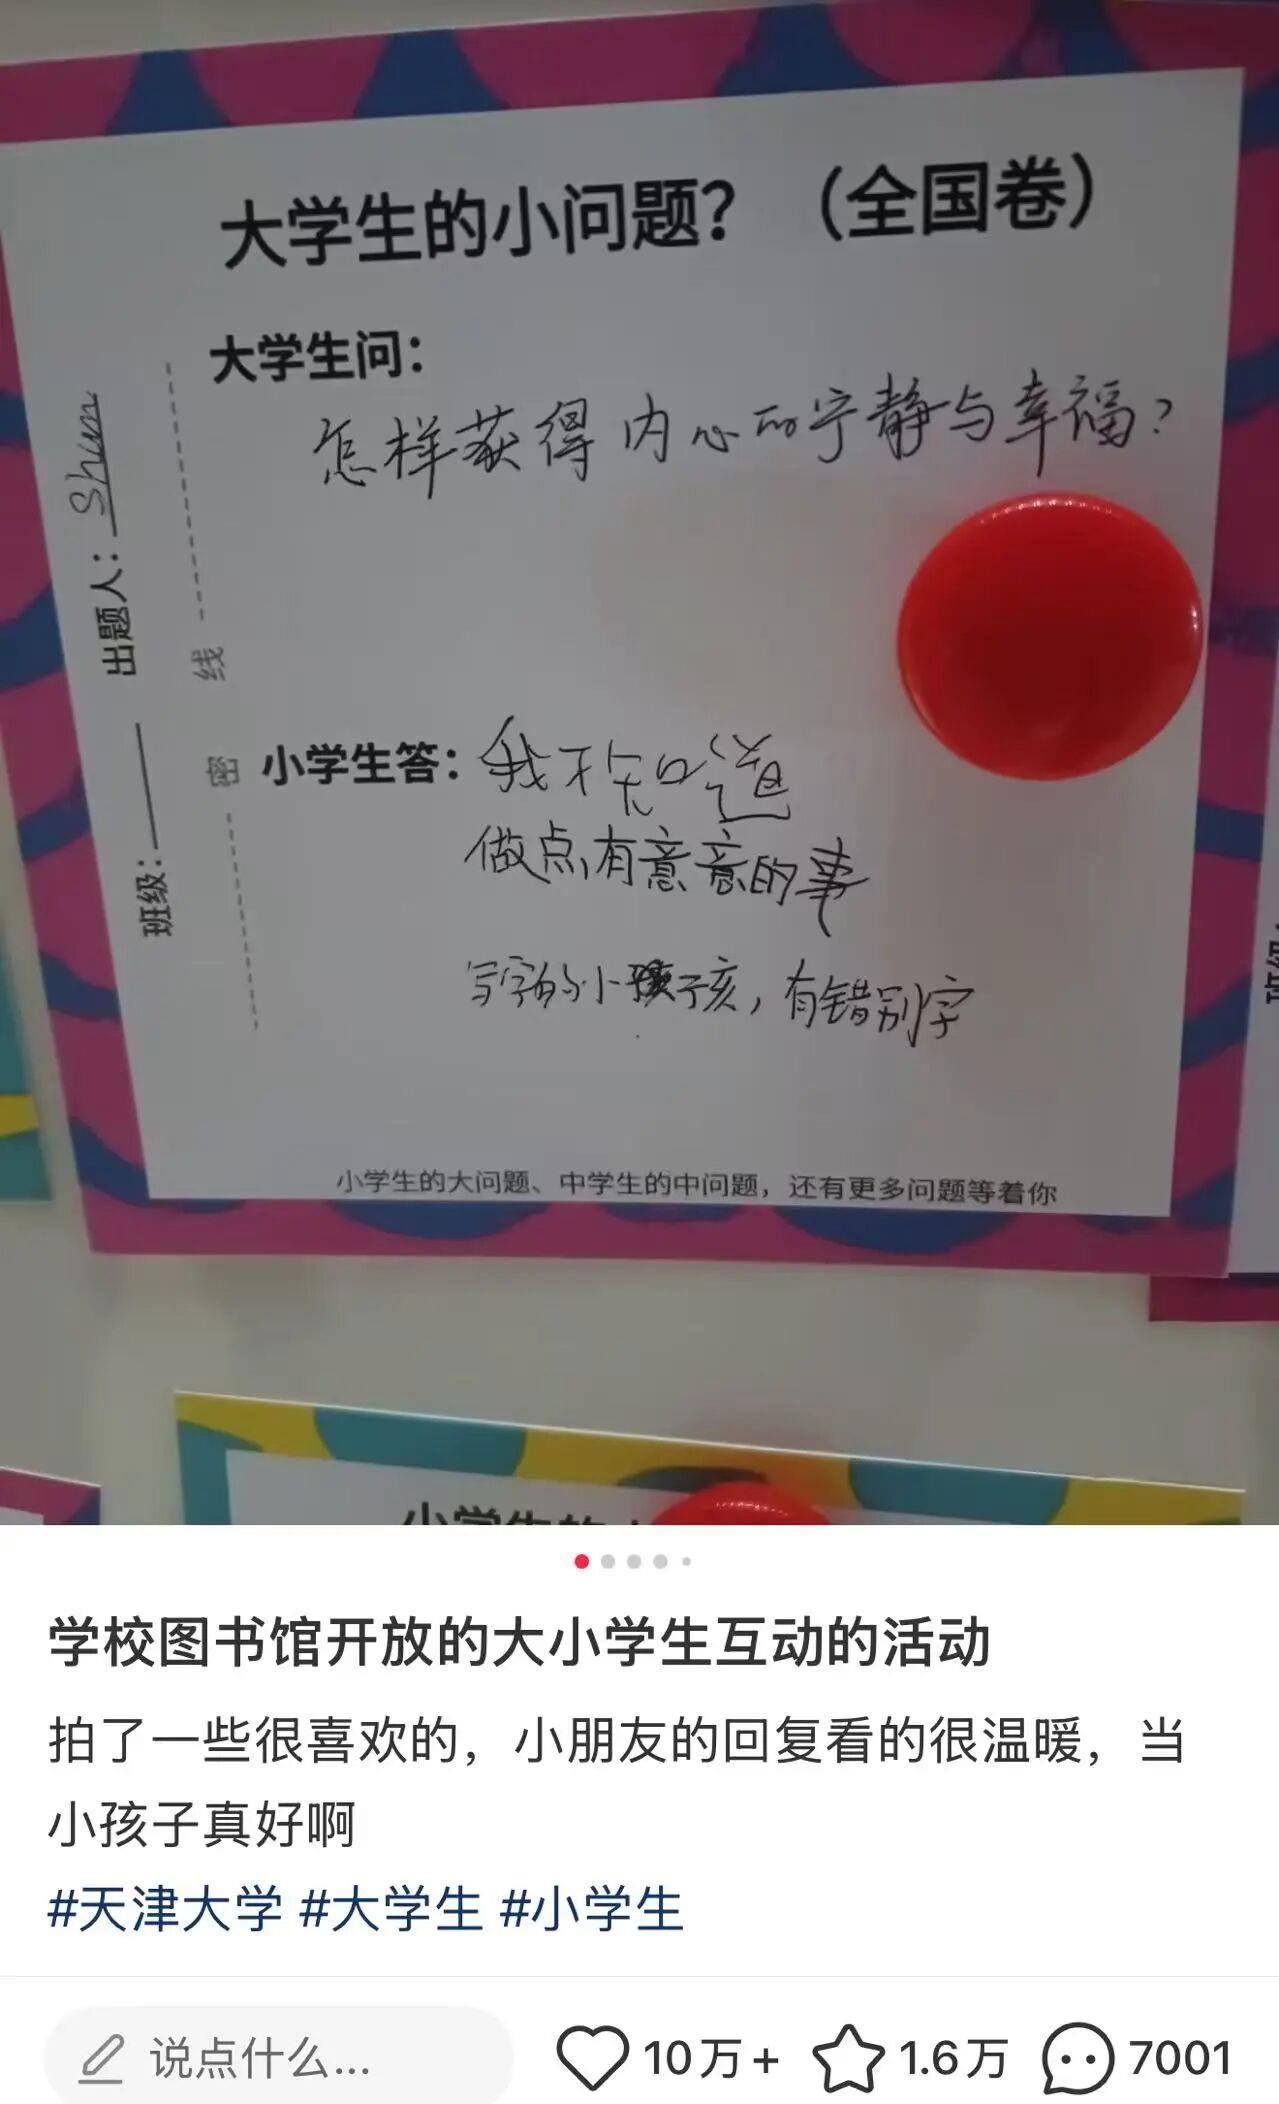 大学生的小问题?(全国卷)
大学生问:
怎样获得内心的宁静与幸福?
出题人:Shun
班级:
线
密
小学生答:我不知道
做点有意意的事
写字的小孩子亥,有错别字
小学生的大问题、中学生的中问题,还有更多问题等着你
小学生的
学校图书馆开放的大小学生互动的活动
拍了一些很喜欢的,小朋友的回复看的很温暖,当
小孩子真好啊
#天津大学 #大学生 #小学生
说点什么... 10万+ 1.6万 7001